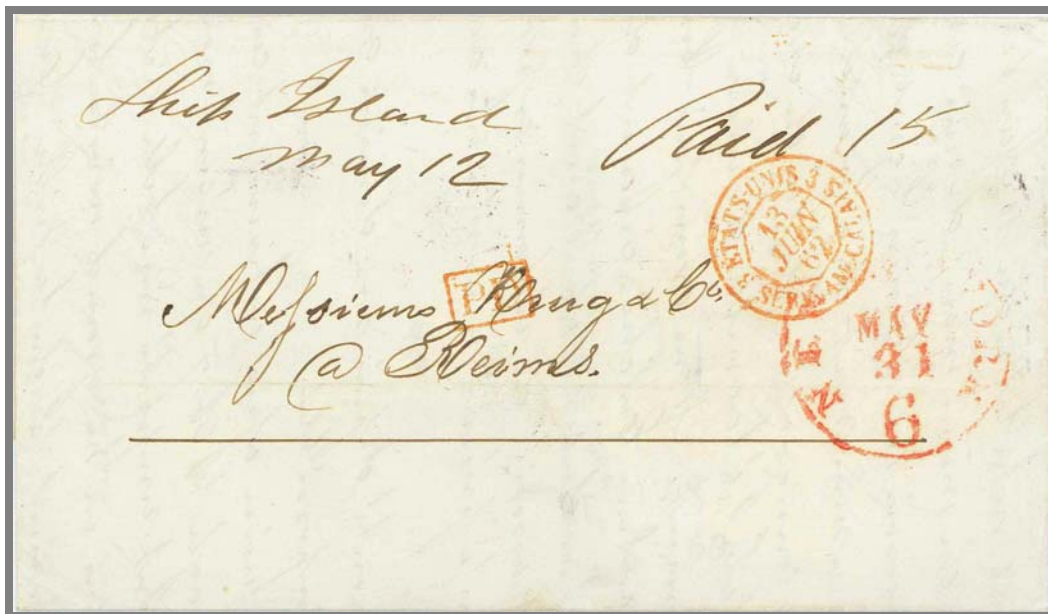 Ship Island
May 12
Paid 15
3 ETATS-UNIS 3 SERV. AM. CALAIS
13
JUIN
62
PD
Messieurs Krug & Co.
@ Reims.
NEW YORK
MAY
31
6